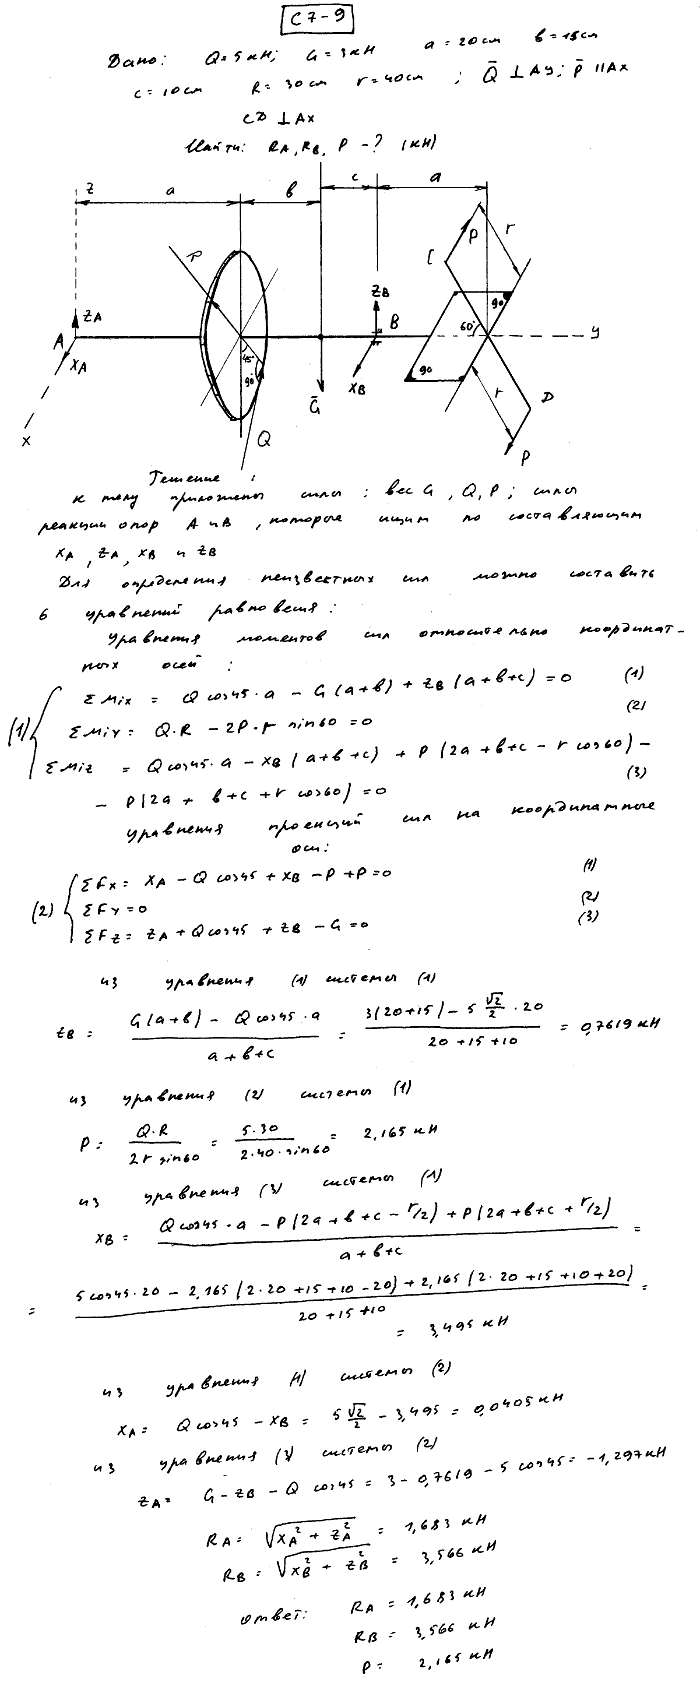 С7-9
Дано: Q=5кН; G=3кН a=20см b=15см
c=10см R=30см r=40см ; Q̄ ⊥AY; P̄ ∥Ax
CD ⊥Ax
Найти: RA, RB, P -? (кН)
z a b c a
P C P r
zA zB 90°
A B 60° y
xA 45° 90° xB 90 r D
x Q Ḡ P
Решение :
к телу приложены силы : вес G , Q, P ; силы
реакции опор A и B , которые ищим по составляющим
xA , zA, xB и zB
Для определения неизвестных сил можно составить
6 уравнений равновесия :
Уравнения моментов сил относительно координат-
ных осей :
(1) ΣMix = Qcos45·a − G(a+b) + zB(a+b+c) = 0 (1)
ΣMiy = Q·R − 2P·r sin60 = 0 (2)
ΣMiz = Qcos45·a − xB(a+b+c) + P(2a+b+c − r cos60) −
− P(2a + b+c + r cos60) = 0 (3)
уравнения проекций сил на координатные
оси:
(2) ΣFx = xA − Qcos45 + xB − P + P = 0 (1)
ΣFy = 0 (2)
ΣFz = zA + Qcos45 + zB − G = 0 (3)
из уравнения (1) системы (1)
zB = G(a+b) − Qcos45·a / a+b+c = 3(20+15) − 5 √2/2 · 20 / 20+15+10 = 0,7619 кН
из уравнения (2) системы (1)
P = Q·R / 2r sin60 = 5·30 / 2·40·sin60 = 2,165 кН
из уравнения (3) системы (1)
xB = Qcos45·a − P(2a+b+c − r/2) + P(2a+b+c + r/2) / a+b+c =
= 5cos45·20 − 2,165(2·20+15+10−20) + 2,165(2·20+15+10+20) / 20+15+10 =
= 3,495 кН
из уравнения (1) системы (2)
xA = Qcos45 − xB = 5 √2/2 − 3,495 = 0,0405 кН
из уравнения (3) системы (2)
zA = G − zB − Q cos45 = 3 − 0,7619 − 5cos45 = −1,297 кН
RA = √xA² + zA² = 1,683 кН
RB = √xB² + zB² = 3,566 кН
ответ: RA = 1,683 кН
RB = 3,566 кН
P = 2,165 кН